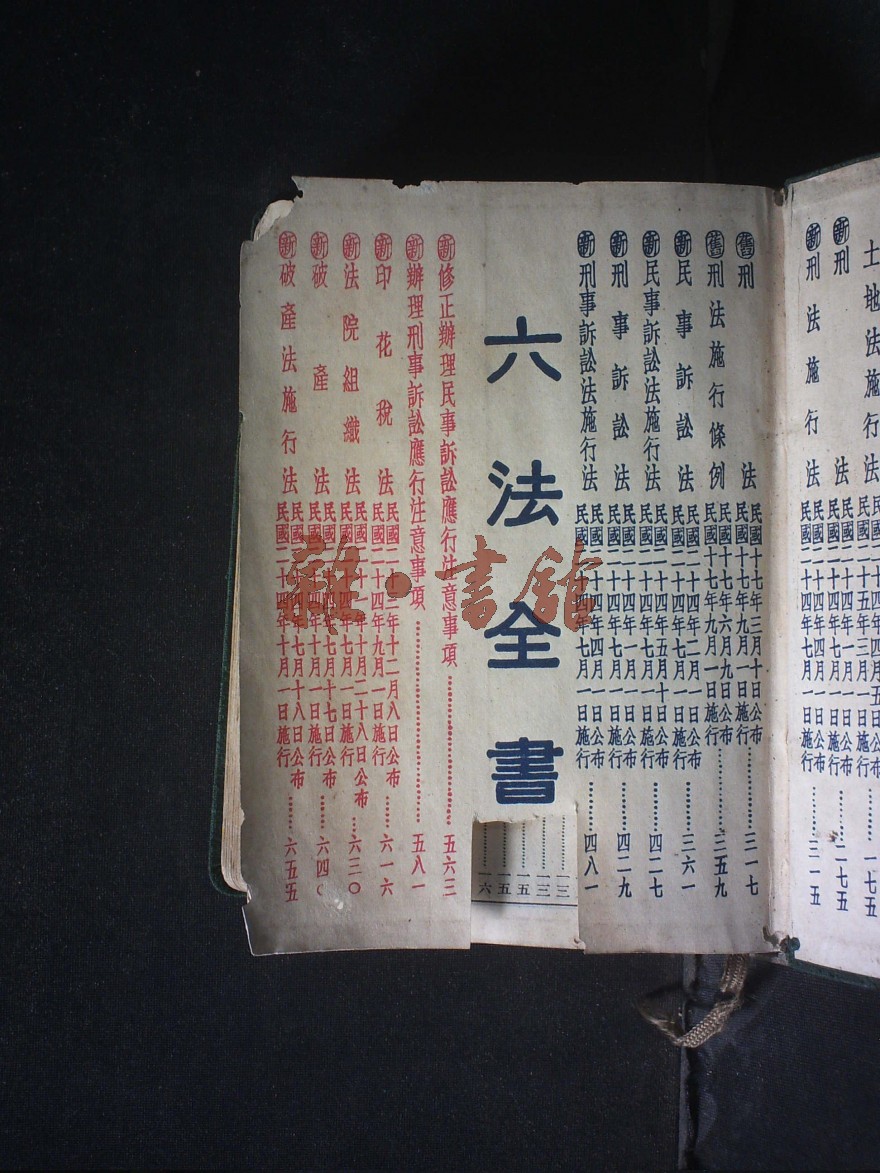 土地法施行法 民國二十四年四月五日公布 民國二十五年三月一日施行……一七五
新刑法 民國二十四年一月一日公布 民國二十四年七月一日施行……二七五
新刑法施行法 民國二十四年四月一日公布 民國二十四年七月一日施行……三一五
舊刑法 民國十七年三月十日公布 民國十七年九月一日施行……三一七
舊刑法施行條例 民國十七年六月九日公布 民國十七年九月一日施行……三五九
新民事訴訟法 民國二十四年二月一日公布 民國二十四年七月一日施行……三六一
新民事訴訟法施行法 民國二十四年五月十日公布 民國二十四年七月一日施行……四二七
新刑事訴訟法 民國二十四年一月一日公布 民國二十四年七月一日施行……四二九
新刑事訴訟法施行法 民國二十四年四月一日公布 民國二十四年七月一日施行……四八一
六法全書
新修正辦理民事訴訟應行注意事項……五六三
新辦理刑事訴訟應行注意事項……五八一
新印花稅法 民國二十三年十二月八日公布 民國二十四年九月一日施行……六一六
新法院組織法 民國二十一年十月二十八日公布 民國二十四年七月一日施行……六三〇
新破產法 民國二十四年七月十七日公布 民國二十四年十月一日施行……六四〇
新破產法施行法 民國二十四年七月十八日公布 民國二十四年十月一日施行……六五五
雜·書館